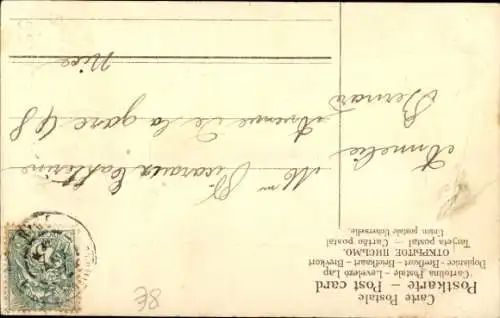 Carte Postale
Postkarte — Post card
Cartolina Postale — Levelező Lap
Dopisnice — Berlkort — Briefkaart — Brevkort
ОТКРЫТОЕ ПИСЬМО.
Tarjeta postal — Cartão postal
Union postale Universelle.
Annelie
Bernard
Avenue de la gare 48
Nice
8€